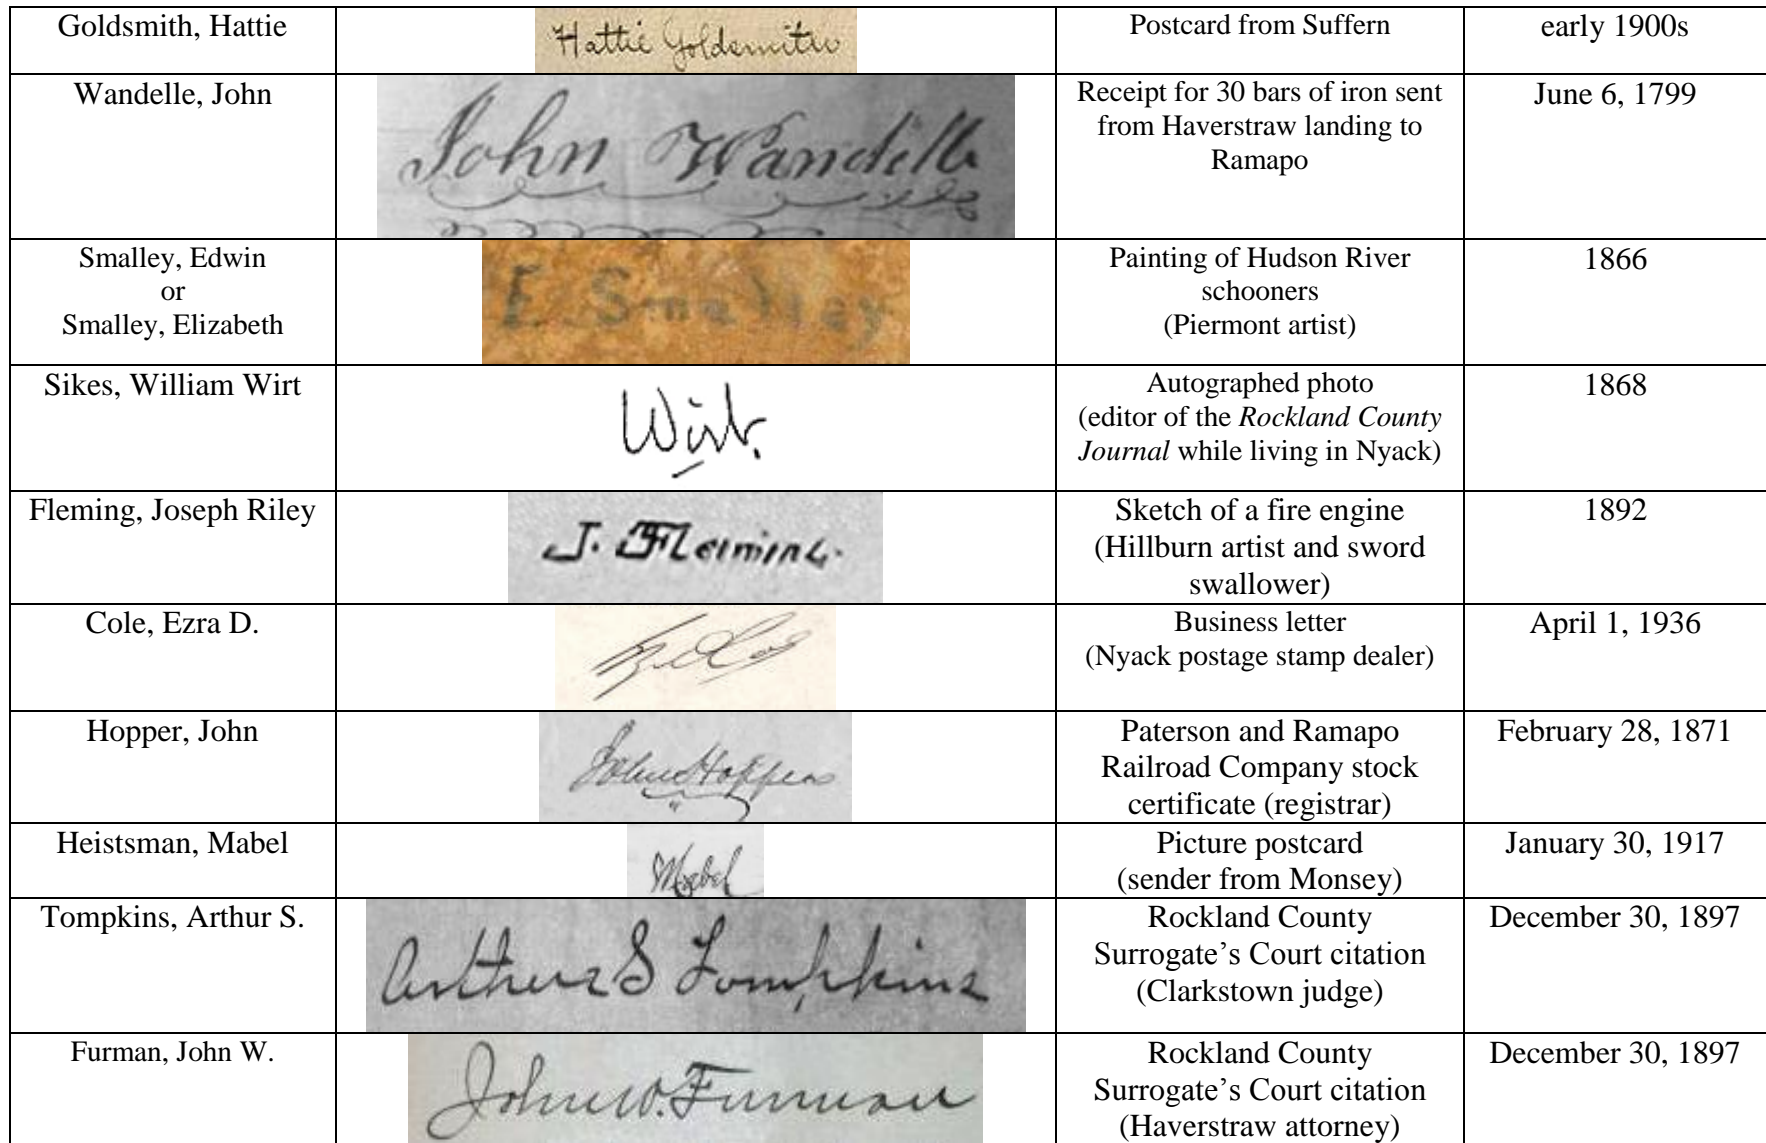 Goldsmith, Hattie
Hattie Goldsmith
Postcard from Suffern
early 1900s
Wandelle, John
John Wandelle
Receipt for 30 bars of iron sent
from Haverstraw landing to
Ramapo
June 6, 1799
Smalley, Edwin
or
Smalley, Elizabeth
E Smalley
Painting of Hudson River
schooners
(Piermont artist)
1866
Sikes, William Wirt
Wirt.
Autographed photo
(editor of the Rockland County
Journal while living in Nyack)
1868
Fleming, Joseph Riley
J. Fleming.
Sketch of a fire engine
(Hillburn artist and sword
swallower)
1892
Cole, Ezra D.
Business letter
(Nyack postage stamp dealer)
April 1, 1936
Hopper, John
John Hopper
Paterson and Ramapo
Railroad Company stock
certificate (registrar)
February 28, 1871
Heistsman, Mabel
Mabel
Picture postcard
(sender from Monsey)
January 30, 1917
Tompkins, Arthur S.
Arthur S Tompkins
Rockland County
Surrogate’s Court citation
(Clarkstown judge)
December 30, 1897
Furman, John W.
John W. Furman
Rockland County
Surrogate’s Court citation
(Haverstraw attorney)
December 30, 1897